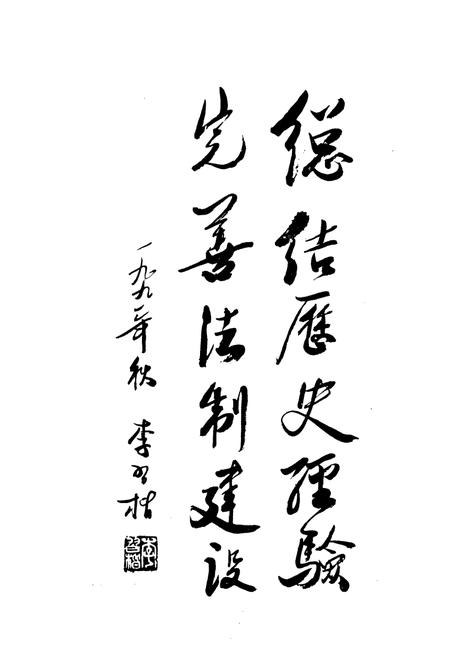 總結歷史經驗
完善法制建设
一九九 年秋 李 楷